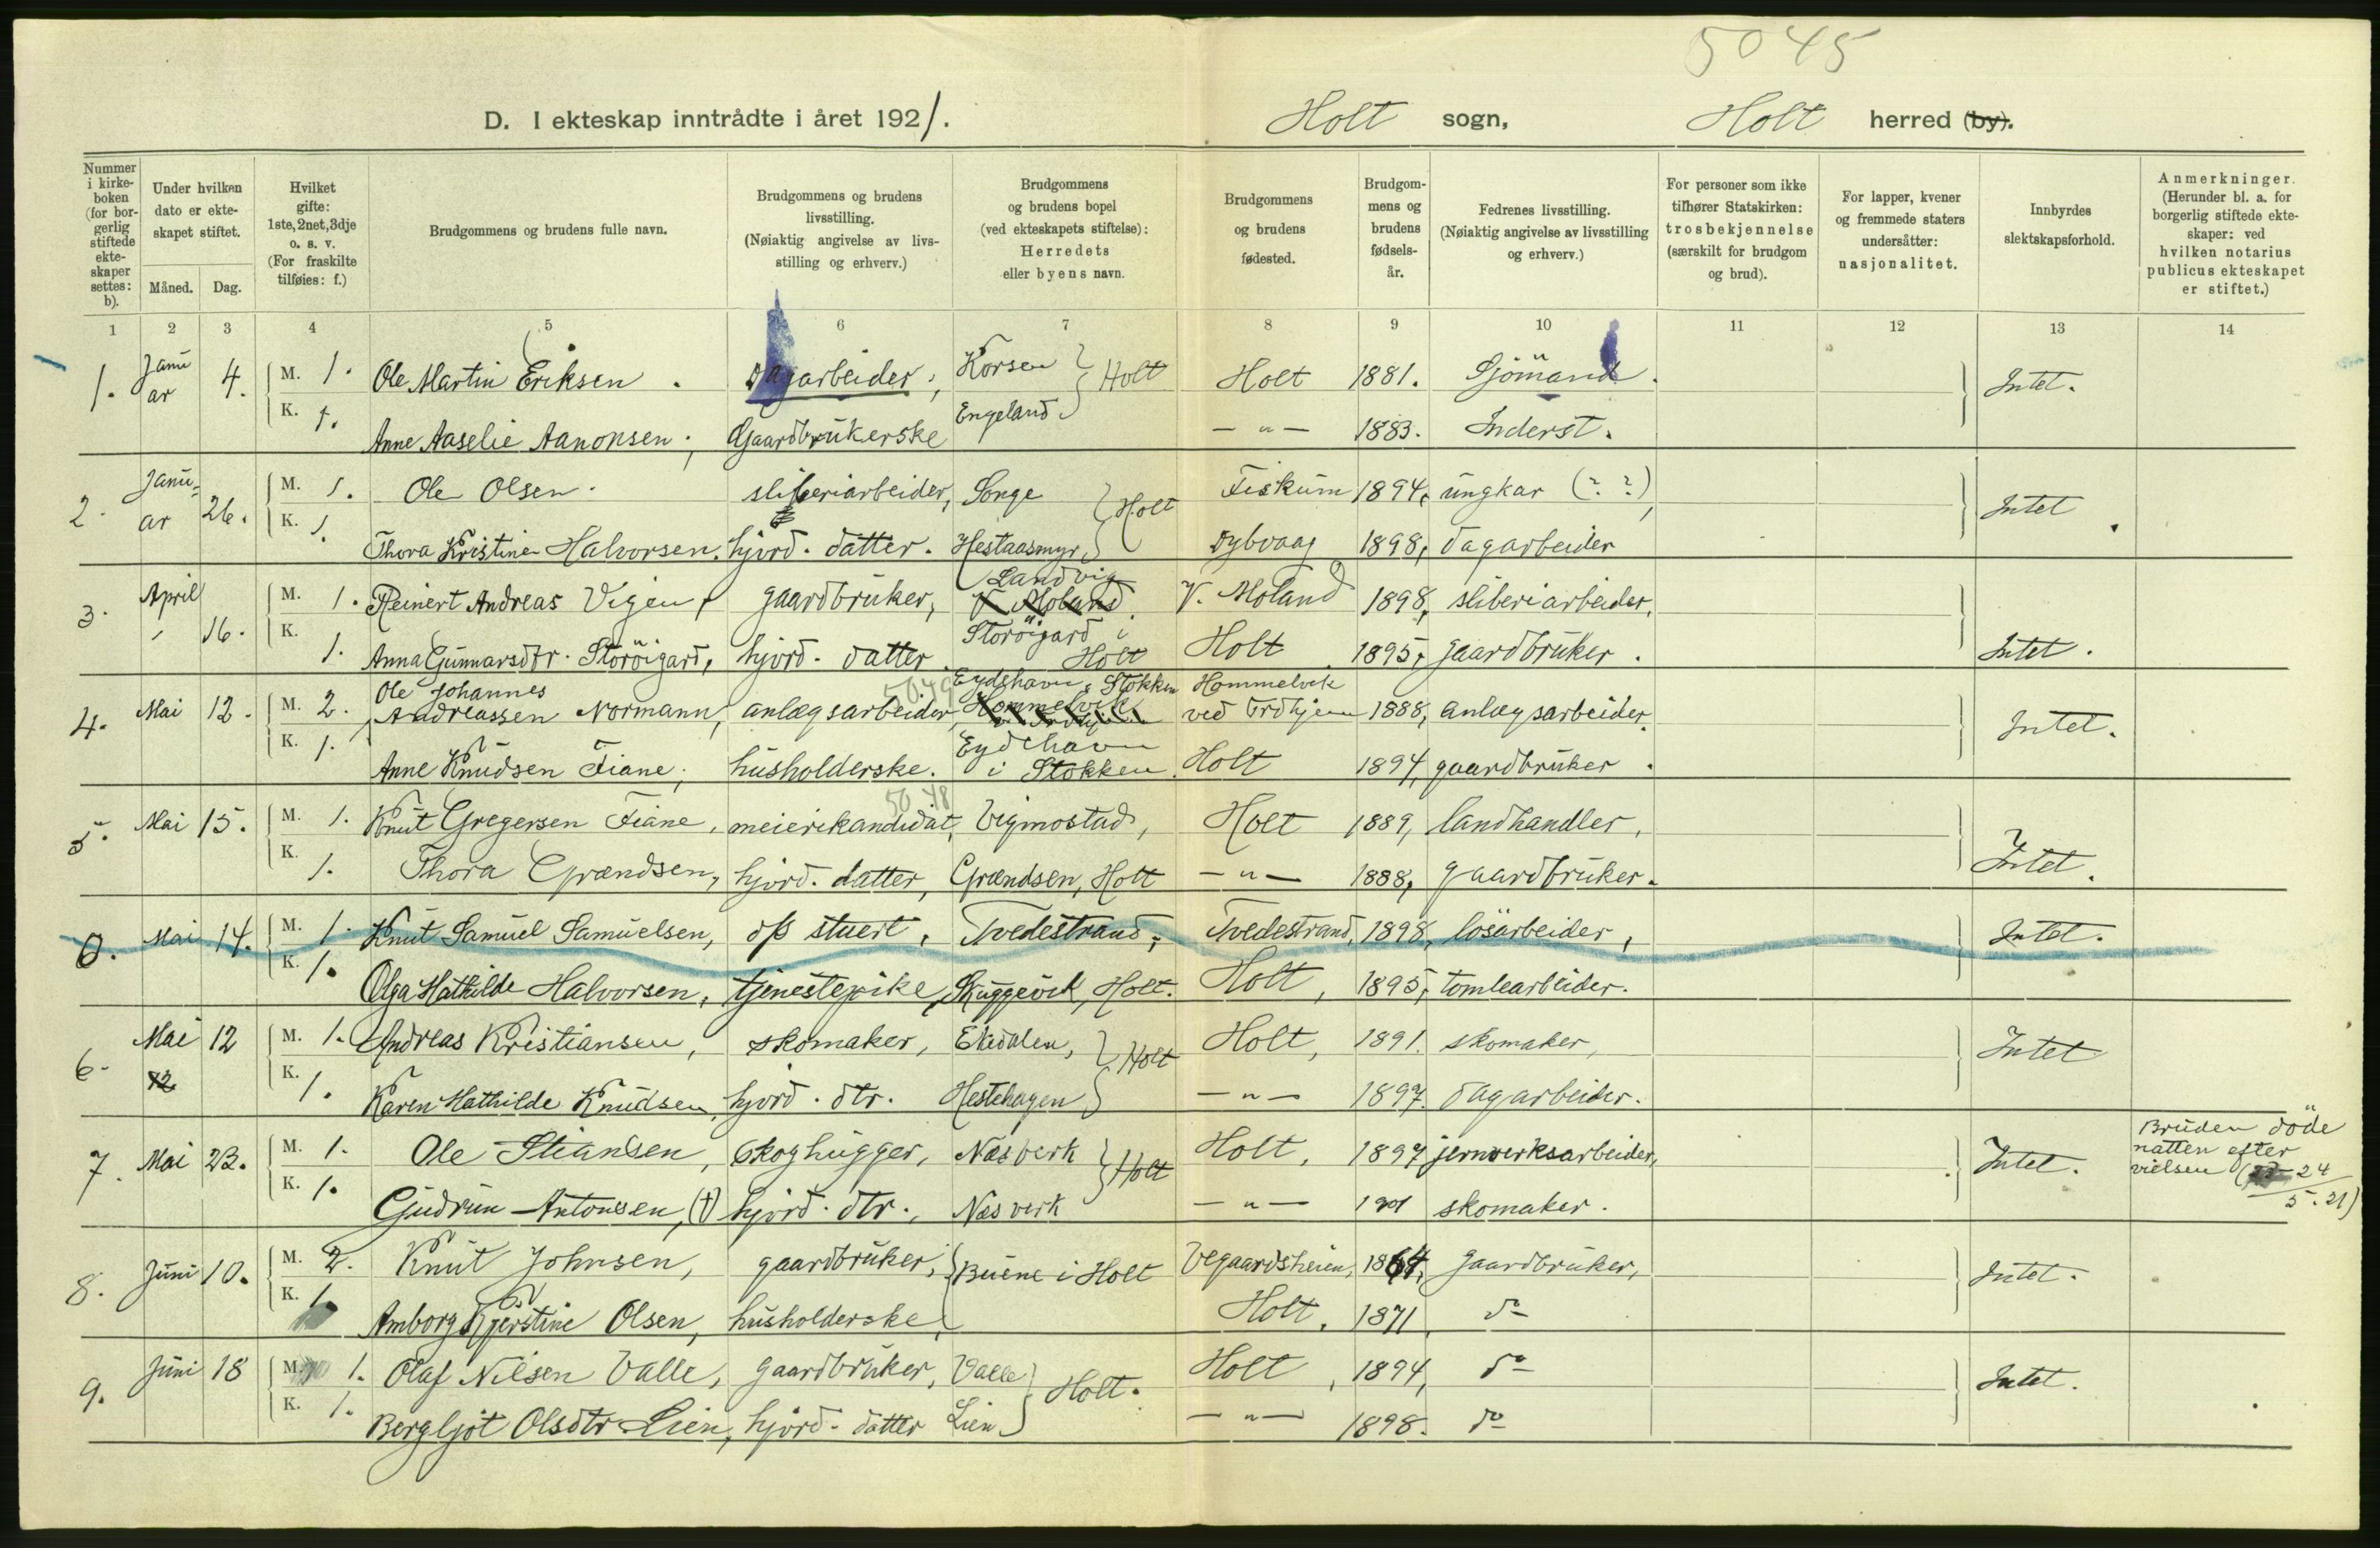 5045
D. I ekteskap inntrådte i året 1921.
Holt sogn, Holt herred (by).
Nummer i kirkeboken (for borgerlig stiftede ekteskaper settes: b).
Under hvilken dato er ekteskapet stiftet.
Måned. Dag.
Hvilket gifte: 1ste, 2net, 3dje o. s. v. (For fraskilte tilføies: f.)
Brudgommens og brudens fulle navn.
Brudgommens og brudens livsstilling. (Nøiaktig angivelse av livsstilling og erhverv.)
Brudgommens og brudens bopel (ved ekteskapets stiftelse): Herredets eller byens navn.
Brudgommens og brudens fødested.
Brudgommens og brudens fødselsår.
Fedrenes livsstilling. (Nøiaktig angivelse av livsstilling og erhverv.)
For personer som ikke tilhører Statskirken: trosbekjennelse (særskilt for brudgom og brud).
For lapper, kvener og fremmede staters undersåtter: nasjonalitet.
Innbyrdes slektskapsforhold.
Anmerkninger. (Herunder bl. a. for borgerlig stiftede ekteskaper: ved hvilken notarius publicus ekteskapet er stiftet.)
1 2 3 4 5 6 7 8 9 10 11 12 13 14
1. Januar 4. M. 1. Ole Martin Eriksen. Dagarbeider, Korsen } Holt Holt 1881. Sjömand. Intet.
K. 1. Anne Aaselie Aanonsen, Gaardbrukerske Engeland — " — 1883. Inderst.
2. Januar 26. M. 1. Ole Olsen. sliberiarbeider, Songe } Holt Fiskum 1894, ungkar (? ?), Intet.
K. 1. Thora Kristine Halvorsen. hjord. datter. Hestaasmyr Dybvaag 1898, dagarbeider
3. April 16. M. 1. Reinert Andreas Vigen, gaardbruker, Landvig V. Moland. V. Moland 1898, sliberiarbeider,
K. 1. Anna Gunnarsdtr. Storöigard, hjord. datter Storöigard i Holt Holt 1895, gaardbruker. Intet.
4. Mai 12. M. 2. Ole Johannes Andreassen Normann, anlægsarbeider, 5049 Eydehavn, Stokken Hommelvik Hommelvik ved Trdhjem 1888, anlægsarbeider. Intet.
K. 1. Anne Knudsen Fiane, husholderske. Eydehavn i Stokken. Holt 1894, gaardbruker.
5. Mai 15. M. 1. Knut Gregersen Fiane, meierikandidat, 5048 Vigmostad, Holt 1889, landhandler, Intet.
K. 1. Thora Grændsen, hjord. datter, Grændsen, Holt — " — 1888, gaardbruker.
0. Mai 14. M. 1. Knut Samuel Samuelsen, d/s stuert, Tvedestrand, Tvedestrand, 1898, lösarbeider, Intet.
K. 1. Olga Mathilde Halvorsen, tjenestepike, Skuggevik, Holt. Holt, 1895, tomtearbeider.
6. Mai 12 12 M. 1. Andreas Kristiansen, skomaker, Ekedalen, } Holt Holt, 1891. skomaker, Intet
K. 1. Karen Mathilde Knudsen, hjord. dtr. Hestehagen — " — 1897. dagarbeider.
7. Mai 23. M. 1. Ole Stiansen, skoghugger, Næs verk } Holt Holt, 1897 jernverksarbeider, Intet. Bruden döde natten efter vielsen (24/5. 21)
K. 1. Gudrun Antonsen, (†) hjord. dtr., Næs verk — " — 1901 skomaker.
8. Juni 10. M. 2. Knut Johnsen, gaardbruker, } Buene i Holt Vegaardsheien, 1864, gaardbruker, Intet.
K. 1. Amborg Kjerstine Olsen, husholderske, Holt, 1871, do
9. Juni 18 M. 1. Olaf Nilsen Valle, gaardbruker, Valle } Holt. Holt, 1894, do Intet.
K. 1. Bergljot Olsdtr Lien, hjord. datter Lien — " — 1898. do